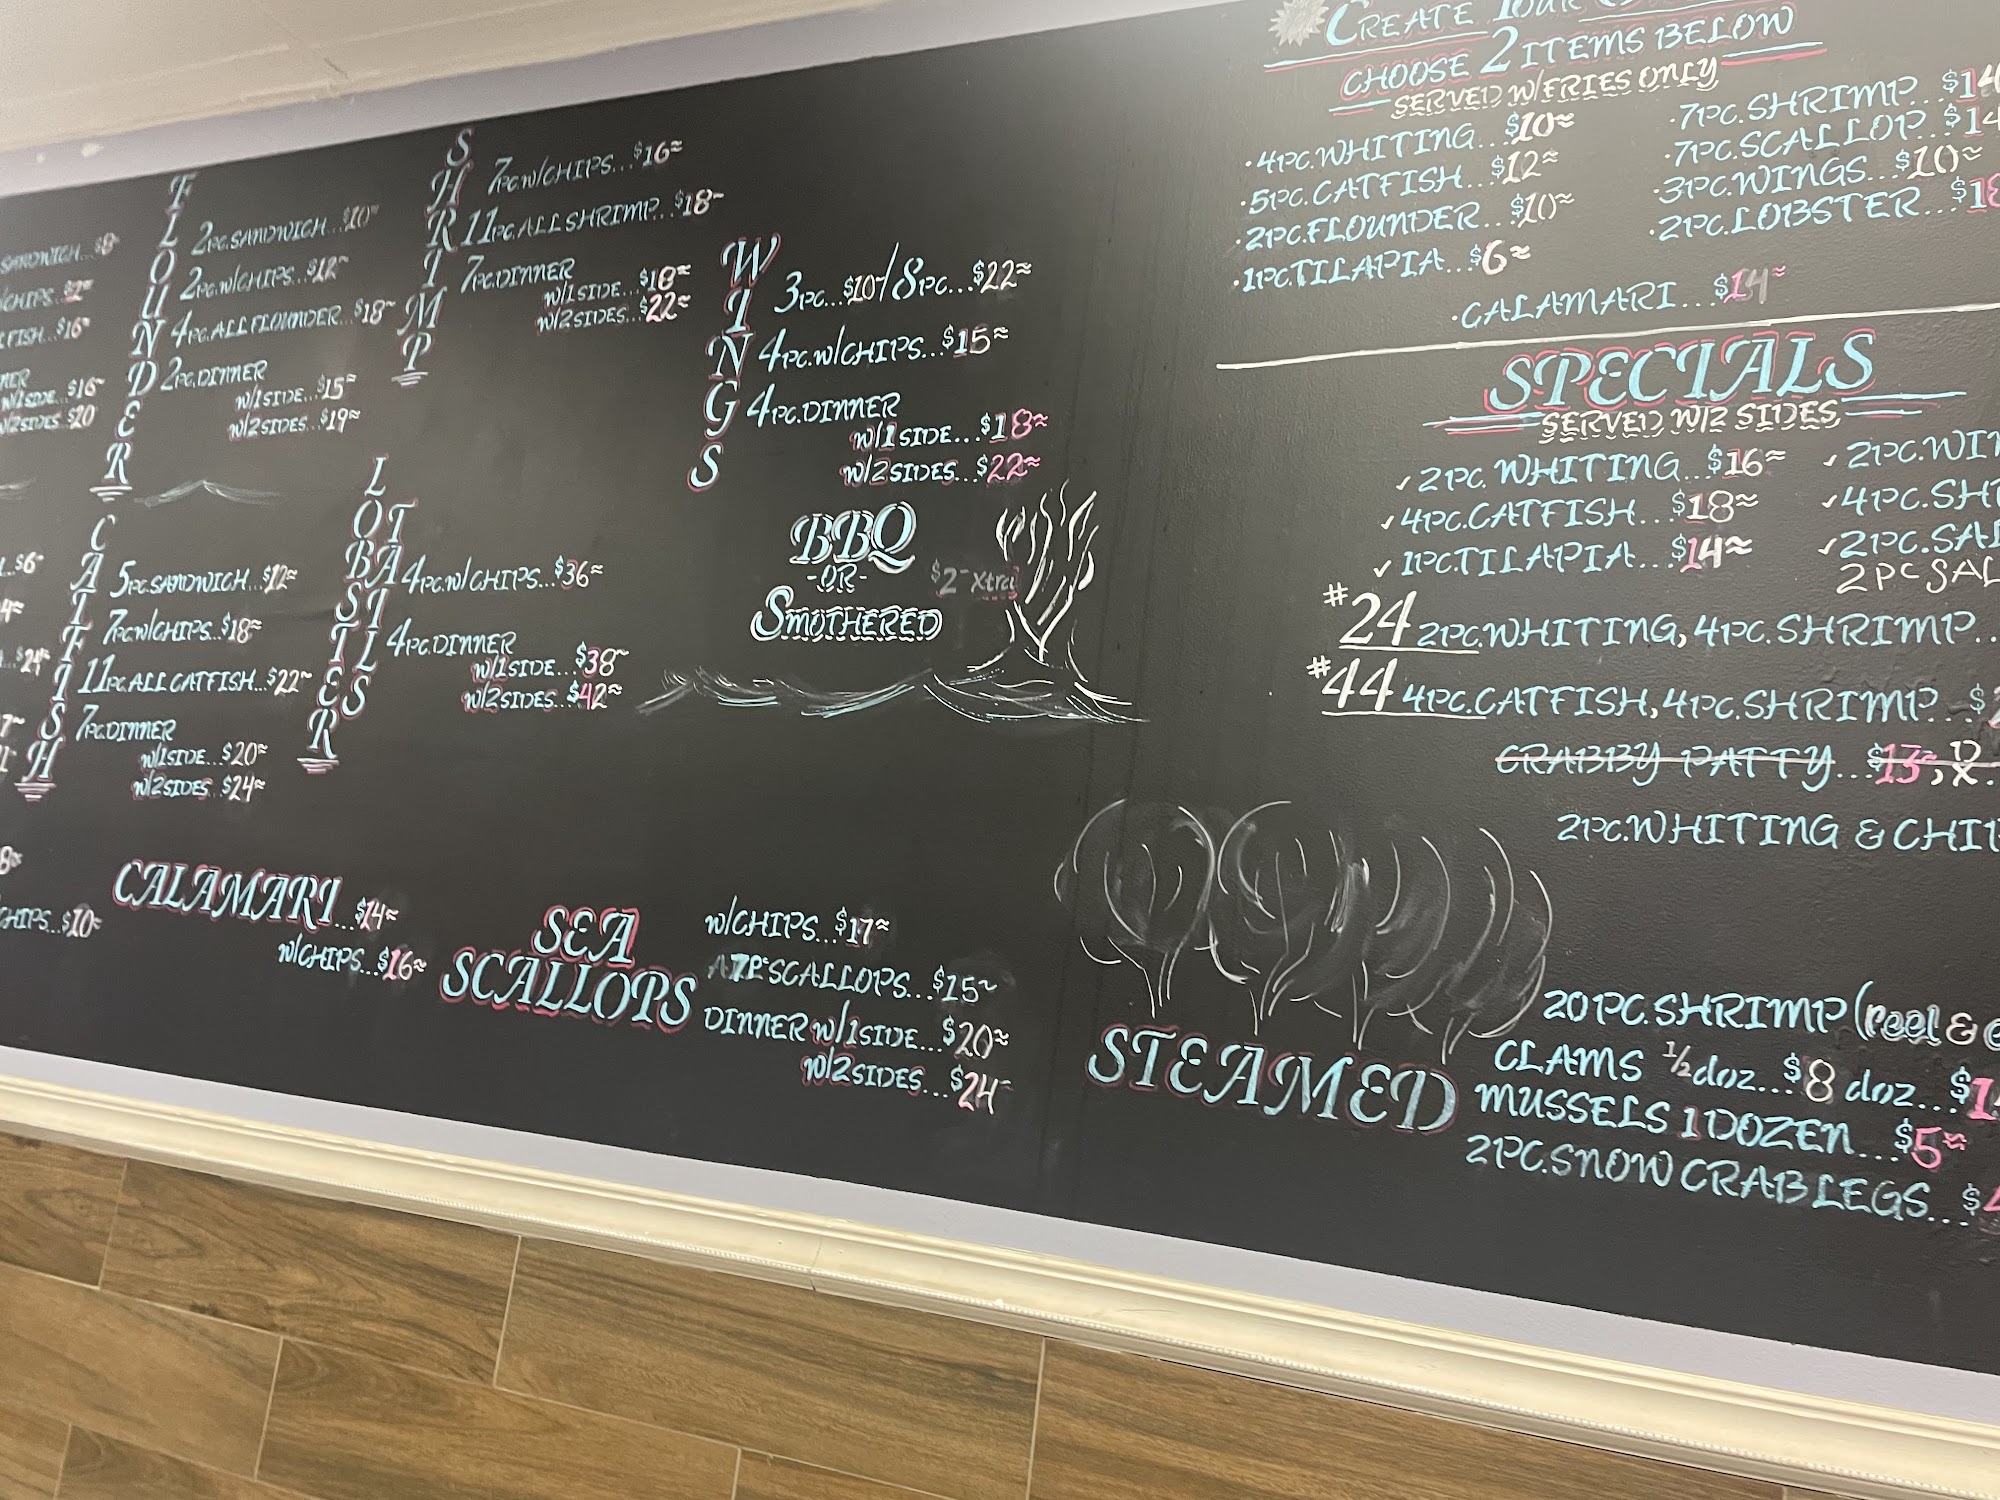 SANDWICH...$8
CHIPS...
FISH...$16
W/1 SIDE...$16
W/2 SIDES...$20
FLOUNDER
2PC.SANDWICH...$10
2PC.W/CHIPS...$12
4PC.ALL FLOUNDER...$18
2PC.DINNER
W/1 SIDE...$15
W/2 SIDES...$19
SHRIMP
7PC W/CHIPS...$16
11PC.ALL SHRIMP...$18
7PC.DINNER
W/1 SIDE...$18
W/2 SIDES...$22
WINGS
3PC...$10/8PC...$22
4PC.W/CHIPS...$15
4PC.DINNER
W/1 SIDE...$18
W/2 SIDES...$22
BBQ
-OR-
SMOTHERED
$2 Xtra
...$6
...$24
CHIPS...$10
CATFISH
5PC.SANDWICH...$12
7PC.W/CHIPS...$18
11PC.ALL CATFISH...$22
7PC.DINNER
W/1 SIDE...$20
W/2 SIDES...$24
LOBSTER TAILS
4PC.W/CHIPS...$36
4PC.DINNER
W/1 SIDE...$38
W/2 SIDES...$42
CALAMARI...$14
W/CHIPS...$16
SEA SCALLOPS
W/CHIPS...$17
7PC SCALLOPS...$15
DINNER W/1 SIDE...$20
W/2 SIDES...$24
CREATE YOUR
CHOOSE 2 ITEMS BELOW
SERVED W/FRIES ONLY
·4PC.WHITING...$10
·5PC.CATFISH...$12
·2PC.FLOUNDER...$10
·1PC.TILAPIA...$6
·7PC.SHRIMP...$14
·7PC.SCALLOP...$14
·3PC.WINGS...$10
·2PC.LOBSTER...$18
·CALAMARI...$14
SPECIALS
SERVED W/2 SIDES
✓2PC. WHITING...$16
✓4PC.CATFISH...$18
✓1PC.TILAPIA...$14
✓2PC.WIN
✓4PC.SH
✓2PC.SAL
2PC SAL
#24 2PC.WHITING, 4PC.SHRIMP...
#44 4PC.CATFISH, 4PC.SHRIMP...$
CRABBY PATTY...$13,
2PC.WHITING & CHIP
STEAMED
20PC.SHRIMP (peel &
CLAMS 1/2 doz...$8 doz...$1
MUSSELS 1 DOZEN...$5
2PC.SNOW CRAB LEGS...$